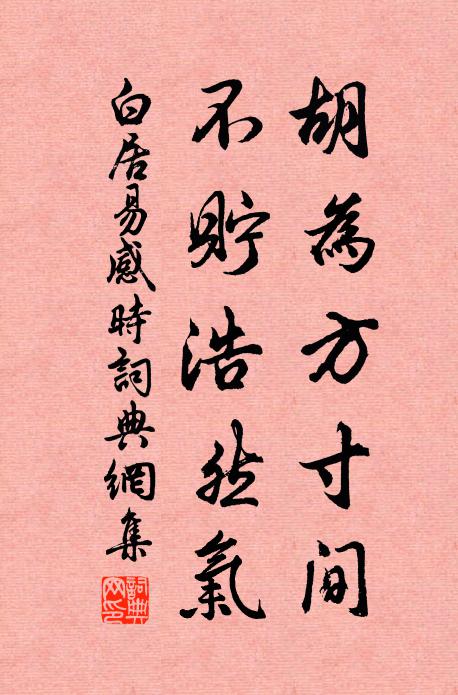 胡為方寸間
不貯浩然氣
白居易感時詞典網集
詞典網印